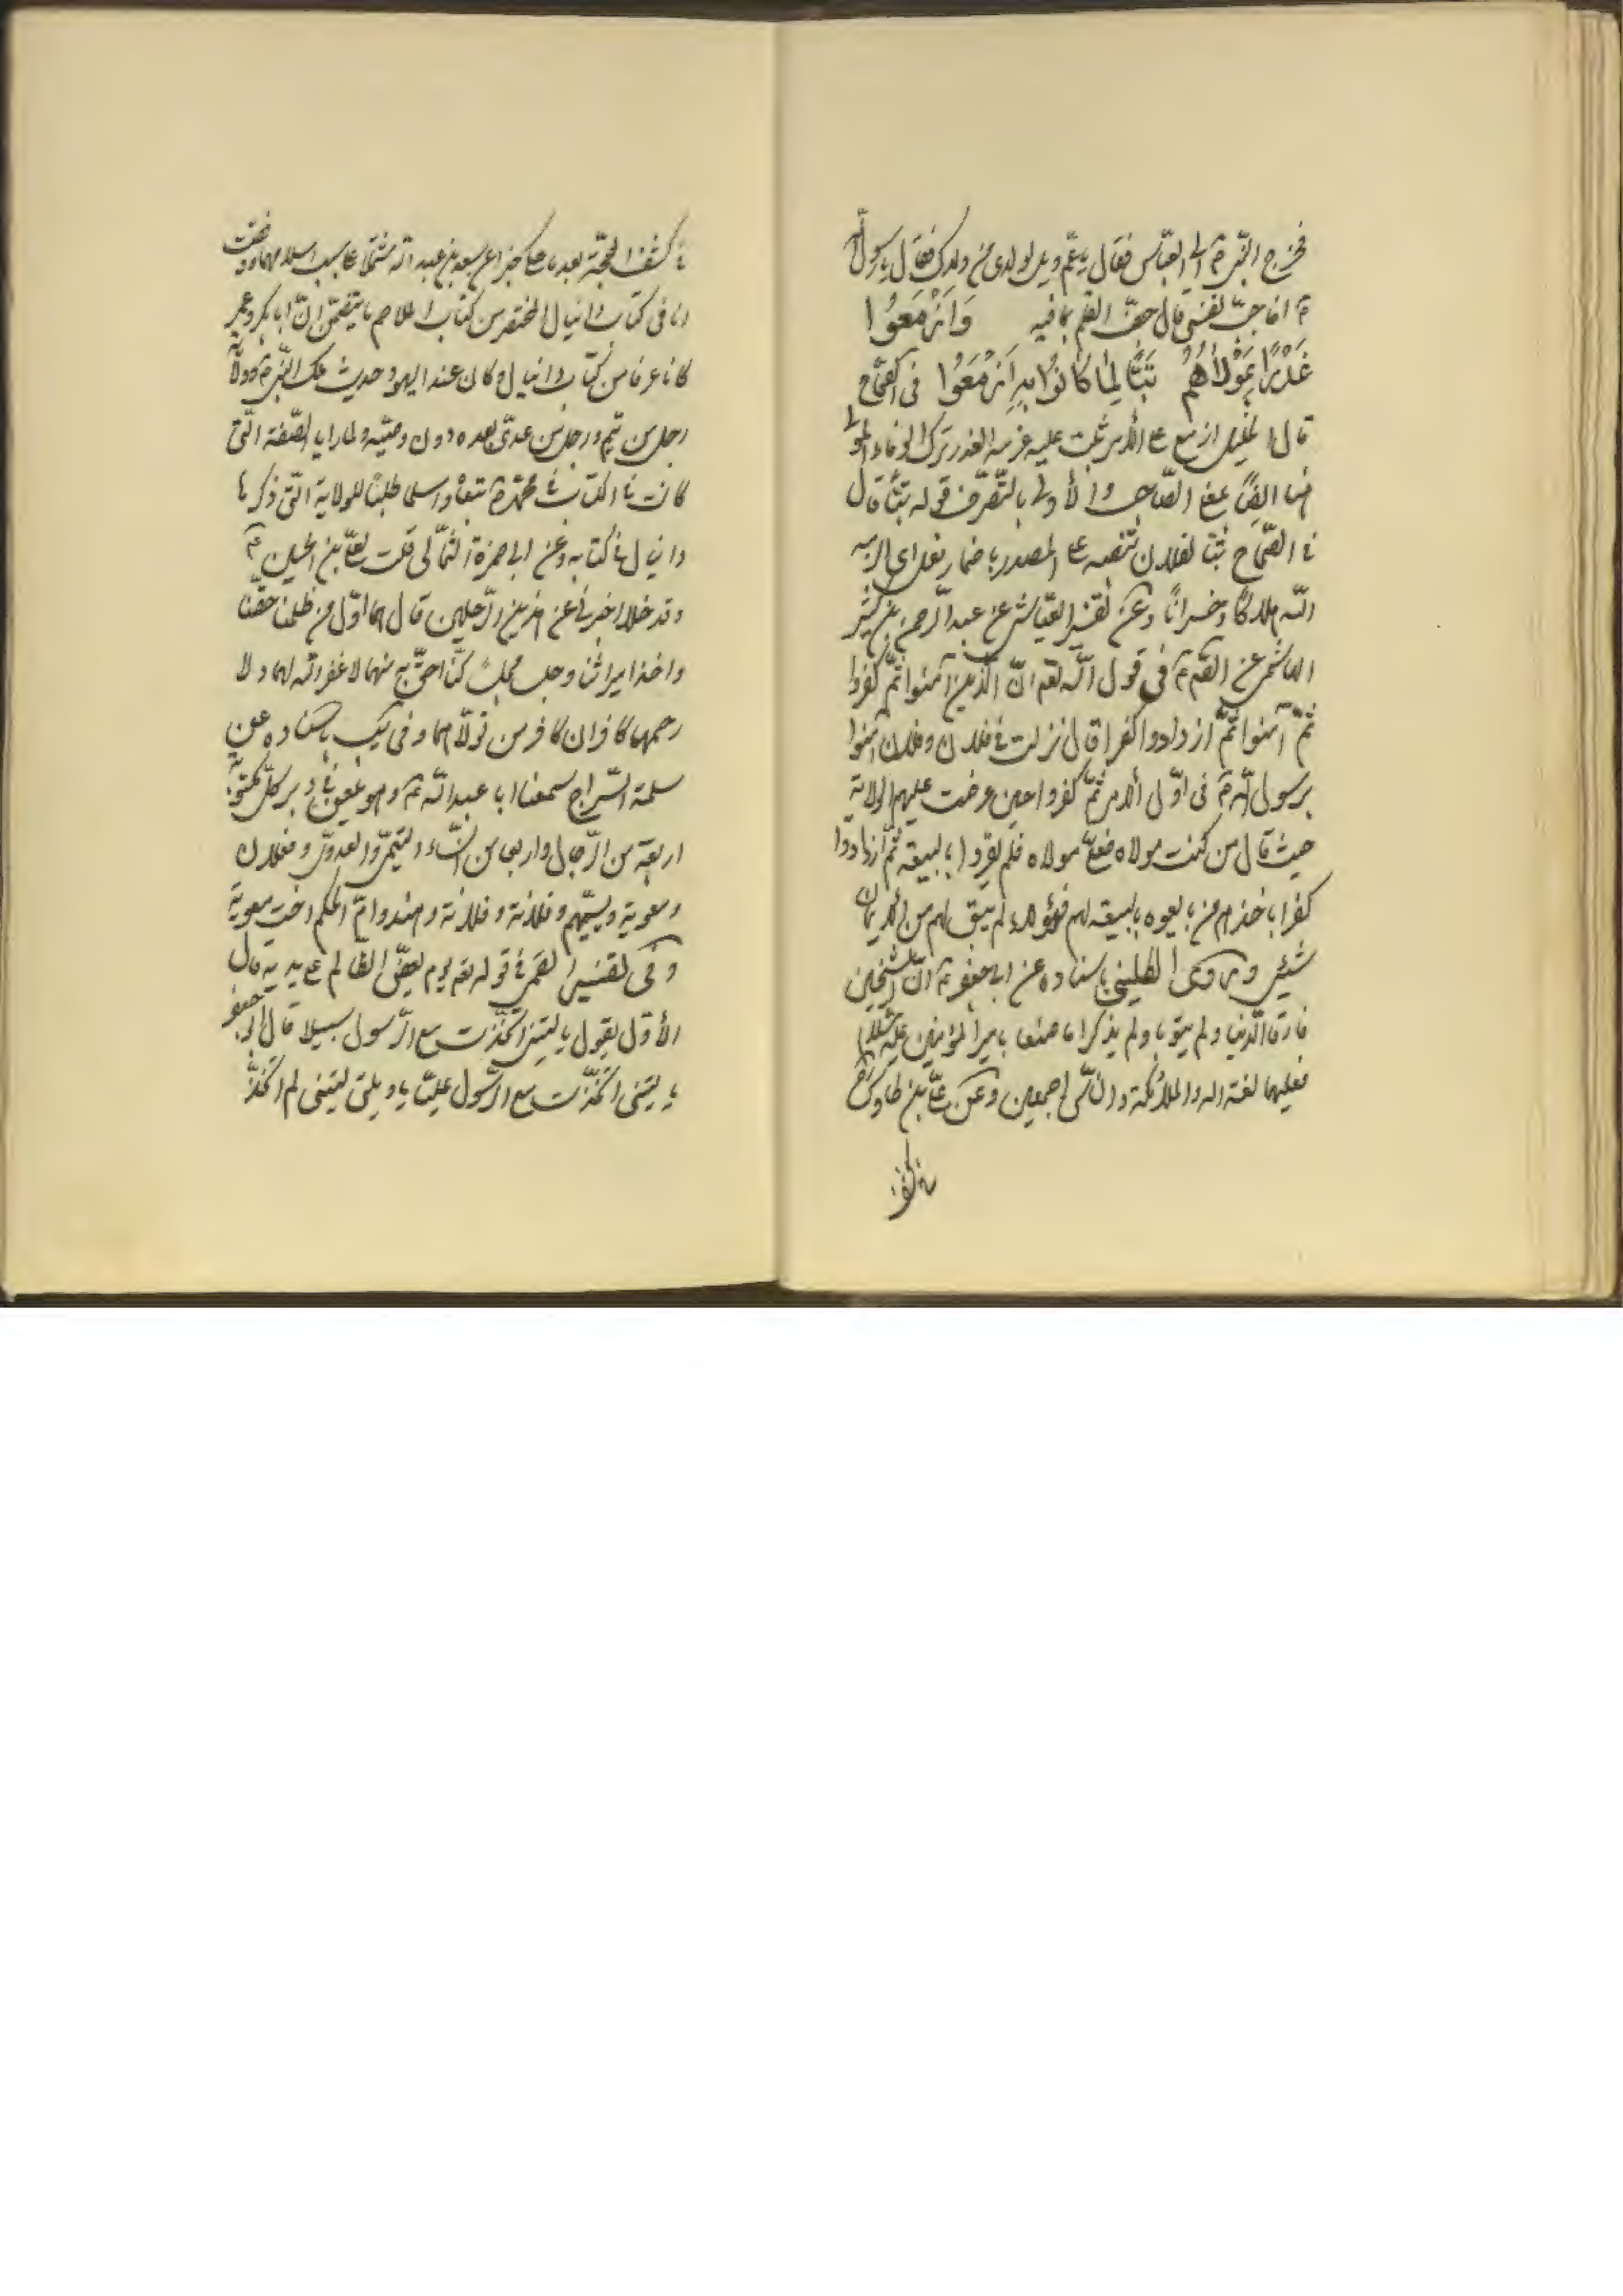 فخرج النبی ص الی العباس فقال یا عم ویل لولدی من ولدک فقال یا رسول الله
ص افاجب نفسی قال جف القلم بما فیه وَاَزْمَعُوا
غَدْرًا بِمَوْلاهُمُ تَبًّا لِمَا كَانُوا بِهِ اَزْمَعُوا فی الصحاح
قال الخلیل ازمع علی الأمر ثبت علیه عزمه الغدر ترک الوفاء المولی
هنا ایضًا بمعنی الصاحب والأولی بالتصرف قوله تبًّا قال
فی الصحاح تبّا لفلان تنصبه علی المصدر باضمار فعل ای الزمه
اللّه هلاکًا وخسرانًا وعن تفسیر العیاشی عن عبد الرحمن بن کثیر
الهاشمی عن الصّ ع فی قول اللّه تعه انّ الّذین آمنوا ثمّ کفروا
ثمّ آمنوا ثمّ ازدادوا کفرا قال نزلت فی فلان وفلان آمنوا
برسول اللّه ص فی اوّل الأمر ثمّ کفروا حین عرضت علیهم الولایة
حیث قال من کنت مولاه فعلیّ مولاه فلم یقروا بالبیعة ثمّ ازدادوا
کفرا باخذهم من بایعوه بالبیعة لهم فهؤلاء لم یبق لهم من الایمان
شیئ وروی الکلینی باسناده عن ابی جعفر ع انّ الشیخین
فارقا الّدنیا ولم یتوبا ولم یذکرا ما صنعا بامیر المؤمنین علیه السلام
فعلیهما لعنة الله والملائکة والناس اجمعین وعن علیّ بن طاوس ره
فی کشف
فی کشف المحجّة بعد ما حکی خبرا عن سعد بن عبد الله مشتملا علی سبب اسلامهما ووقفت
انا فی کتاب دانیال المختصر من کتاب الملاحم ما یتضمّن انّ ابا بکر وعمر
کانا عرفا من کتاب دانیال وکان عند الیهود حدیث ملک النّبی ص وولایة
رجل من تیم ورجل من عدیّ بعده دون وصیّه ولما رایا الصّفة الّتی
کانت فی الکتاب فی محمّد ص تبعاه واسلما طلبًا للولایة الّتی ذکرها
دانیال فی کتابه وعن ابی حمزة الثمّالی قلت لعلیّ بن الحسین ع
وقد خلا اخبرنی عن هذین الرّجلین قال هما اوّل من ظلمنا حقّنا
واخذا میراثنا وجلسا مجلسًا کنّا احقّ به منهما لا غفر الله لهما ولا
رحمهما کافران کافر من تولّاهما وفی یب باسناده عن
سلمة السّراج سمعنا ابا عبد اللّه ع وهو یلعن فی دبر کلّ مکتوبة
اربعة من الرّجال واربعا من النّساء التیمیّ والعدویّ وفعلان
ومعویة ویسمّیهم وفلانة وفلانة وهند وامّ الحکم اخت معویة
وفی تفسیر القمی فی قوله تعه یوم یعضّ الظالم علی یدیه قال
الأوّل یقول یا لیتنی اتخذت مع الرّسول سبیلا قال ابو جعفر
یا لیتنی اتخذت مع الرّسول علیّا یا ویلتی لیتنی لم اتخذ